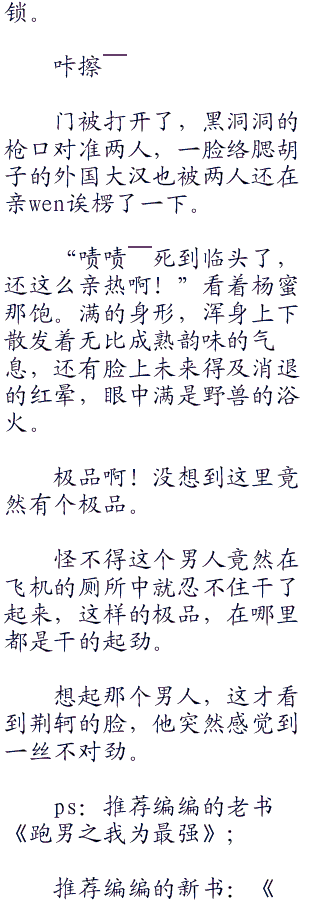 锁。
咔擦——
门被打开了，黑洞洞的
枪口对准两人，一脸络腮胡
子的外国大汉也被两人还在
亲wen诶楞了一下。
“啧啧——死到临头了，
还这么亲热啊！”看着杨蜜
那饱。满的身形，浑身上下
散发着无比成熟韵味的气
息，还有脸上未来得及消退
的红晕，眼中满是野兽的浴
火。
极品啊！没想到这里竟
然有个极品。
怪不得这个男人竟然在
飞机的厕所中就忍不住干了
起来，这样的极品，在哪里
都是干的起劲。
想起那个男人，这才看
到荆轲的脸，他突然感觉到
一丝不对劲。
ps：推荐编编的老书
《跑男之我为最强》；
推荐编编的新书：《